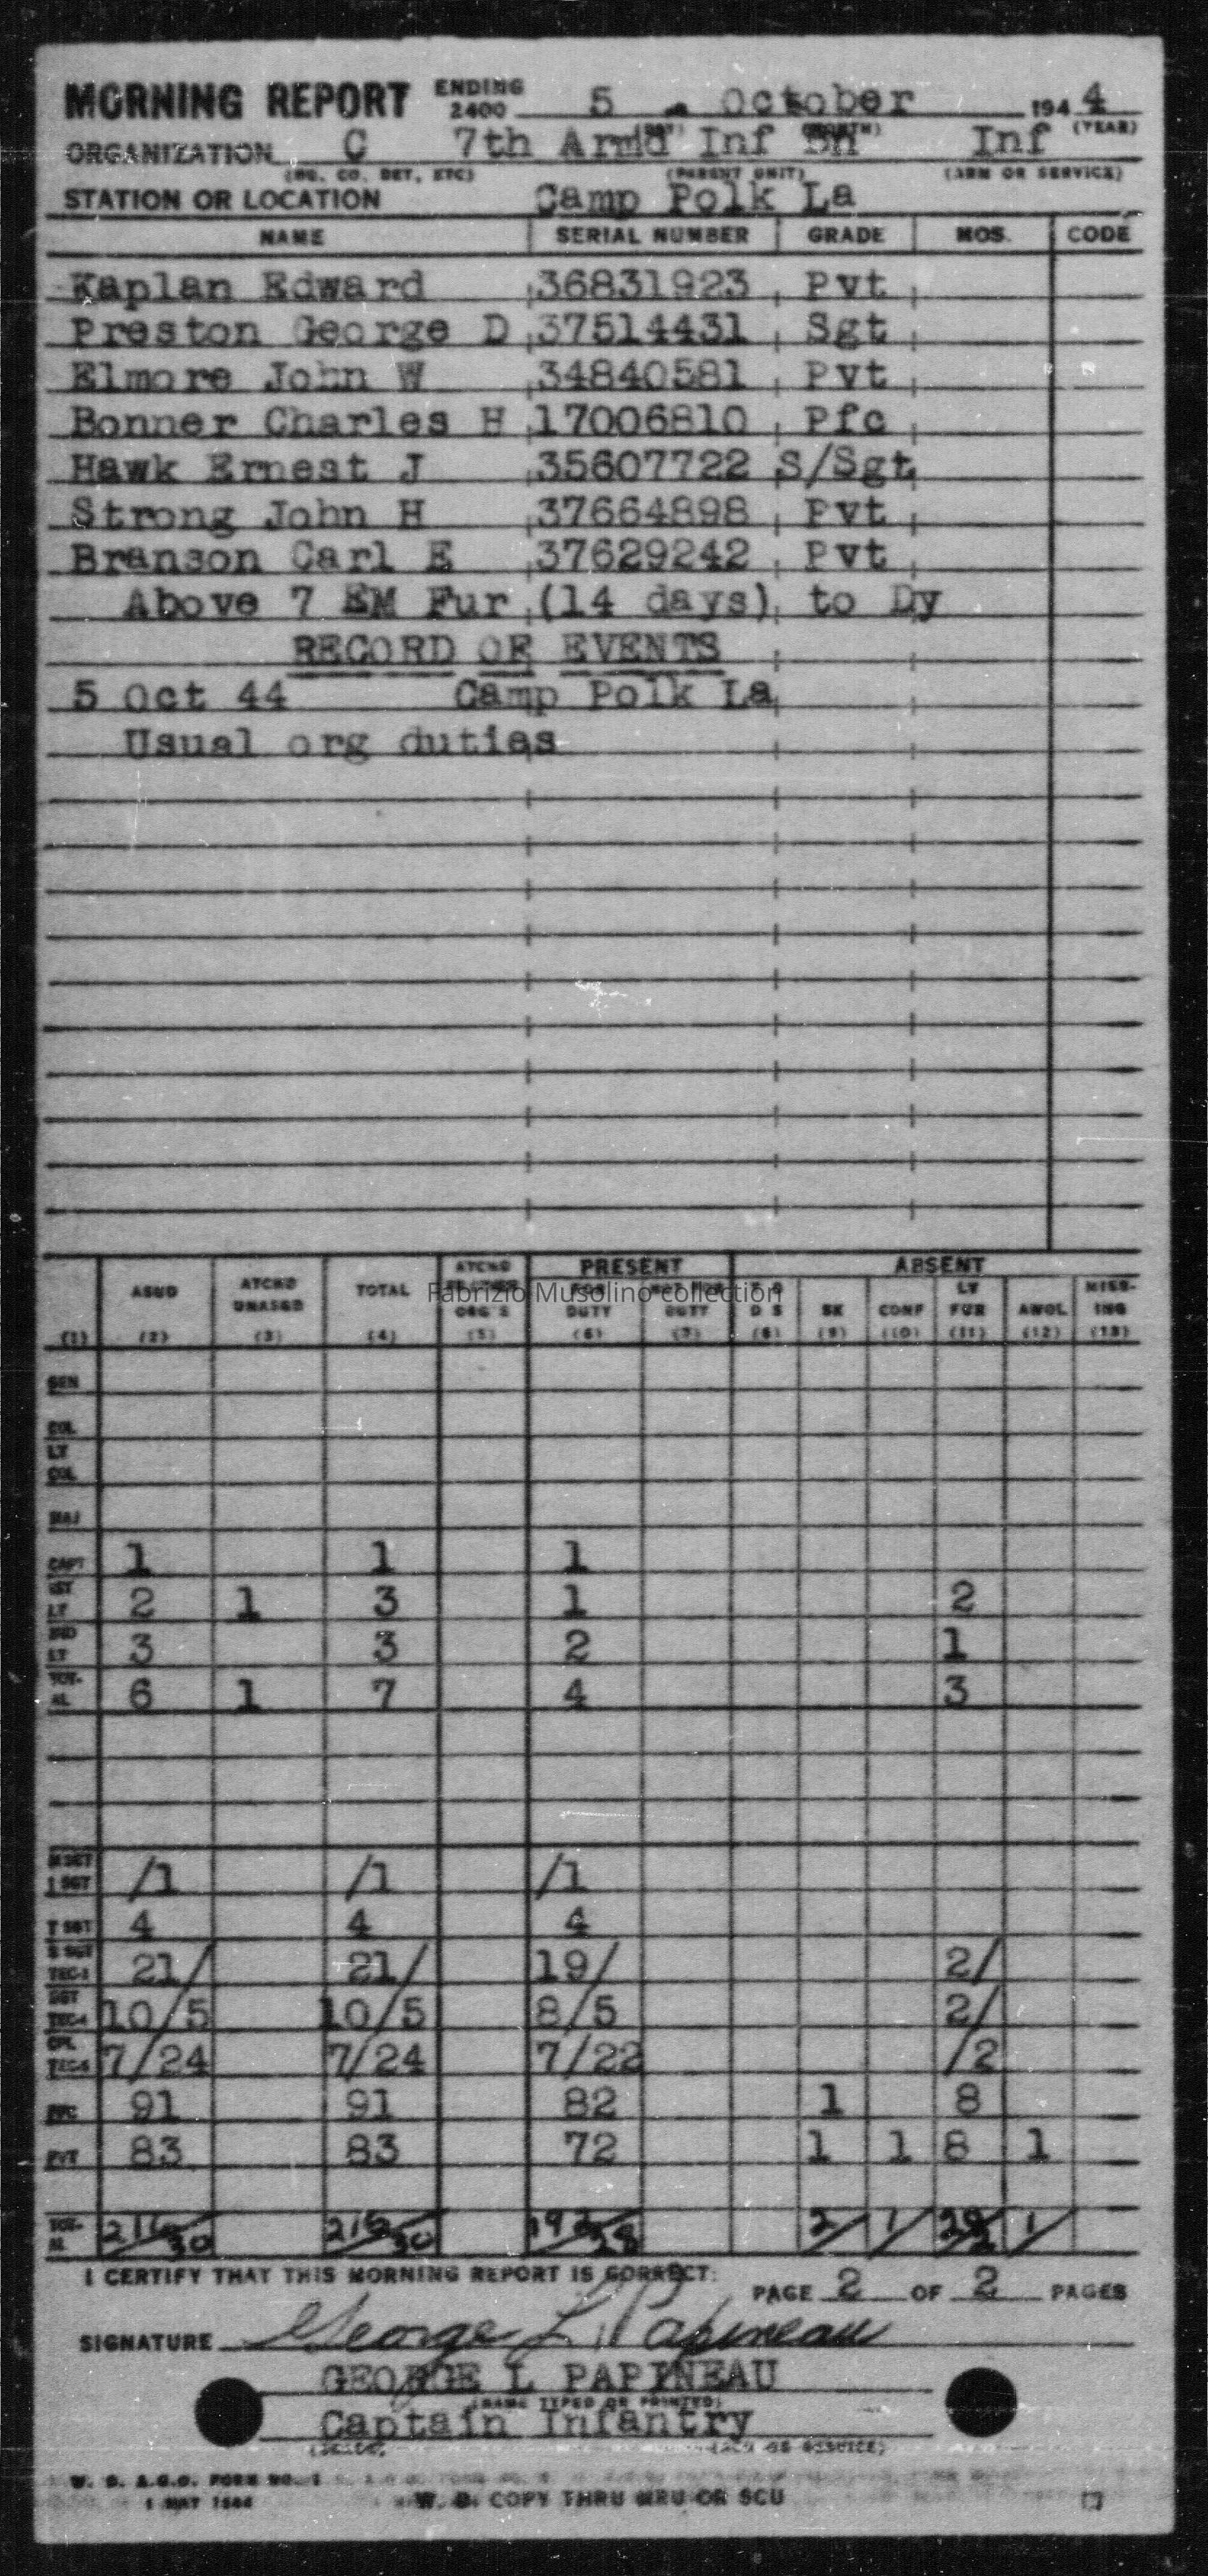 MORNING REPORT ENDING 2400 5 October 1944
(DAY) (MONTH) (YEAR)
ORGANIZATION C 7th Armd Inf Bn Inf
(HQ. CO. DET, ETC) (PARENT UNIT) (ARM OR SERVICE)
STATION OR LOCATION Camp Polk La
NAME SERIAL NUMBER GRADE MOS. CODE
Kaplan Edward 36831923 Pvt
Preston George D 37514431 Sgt
Elmore John W 34840581 Pvt
Bonner Charles H 17006810 Pfc
Hawk Ernest J 35607722 S/Sgt
Strong John H 37664898 Pvt
Branson Carl E 37629242 Pvt
Above 7 EM Fur (14 days) to Dy
RECORD OF EVENTS
5 Oct 44 Camp Polk La
Usual org duties
ATCHD PRESENT ABSENT
ASGD ATCHD UNASGD TOTAL ORG'S FOR DUTY NOT FOR DUTY T D D S SK CONF LT FUR AWOL MISSING
Fabrizio Musolino collection
(1) (2) (3) (4) (5) (6) (7) (8) (9) (10) (11) (12) (13)
GEN
COL
LT COL
MAJ
CAPT 1 1 1
1ST LT 2 1 3 1 2
2ND LT 3 3 2 1
TOTAL 6 1 7 4 3
M SGT
1 SGT /1 /1 /1
T SGT 4 4 4
S SGT TEC-3 21/ 21/ 19/ 2/
SGT TEC-4 10/5 10/5 8/5 2/
CPL TEC-5 7/24 7/24 7/22 /2
PFC 91 91 82 1 8
PVT 83 83 72 1 1 8 1
TOTAL 216/30 216/30 192/28 2/ 1/ 20/2 1/
I CERTIFY THAT THIS MORNING REPORT IS CORRECT: PAGE 2 OF 2 PAGES
SIGNATURE George L Papineau
GEORGE L PAPINEAU
(NAME TYPED OR PRINTED)
Captain Infantry
(GRADE) (ARM OR SERVICE)
W. D. A.G.O. FORM NO. 1
1 MAY 1944 W. D. COPY THRU MRU OR SCU